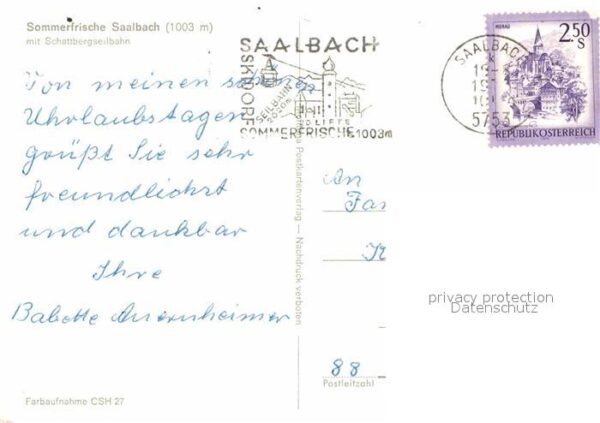 Sommerfrische Saalbach (1003 m)
mit Schattbergseilbahn
SAALBACH
SKIDORF
SEILBAHN
2020m
LIFTE
SOMMERFRISCHE 1003m
SAALBACH
5753
MURAU
2.50
S
REPUBLIK ÖSTERREICH
Von meinen schönen
Uhrlaubstagen
grüßt Sie sehr
freundliohrt
und dankbar
Ihre
Babette Auernheimer
Postkartenverlag — Nachdruck verboten
An
Fa
88
Postleitzahl
privacy protection
Datenschutz
Farbaufnahme CSH 27